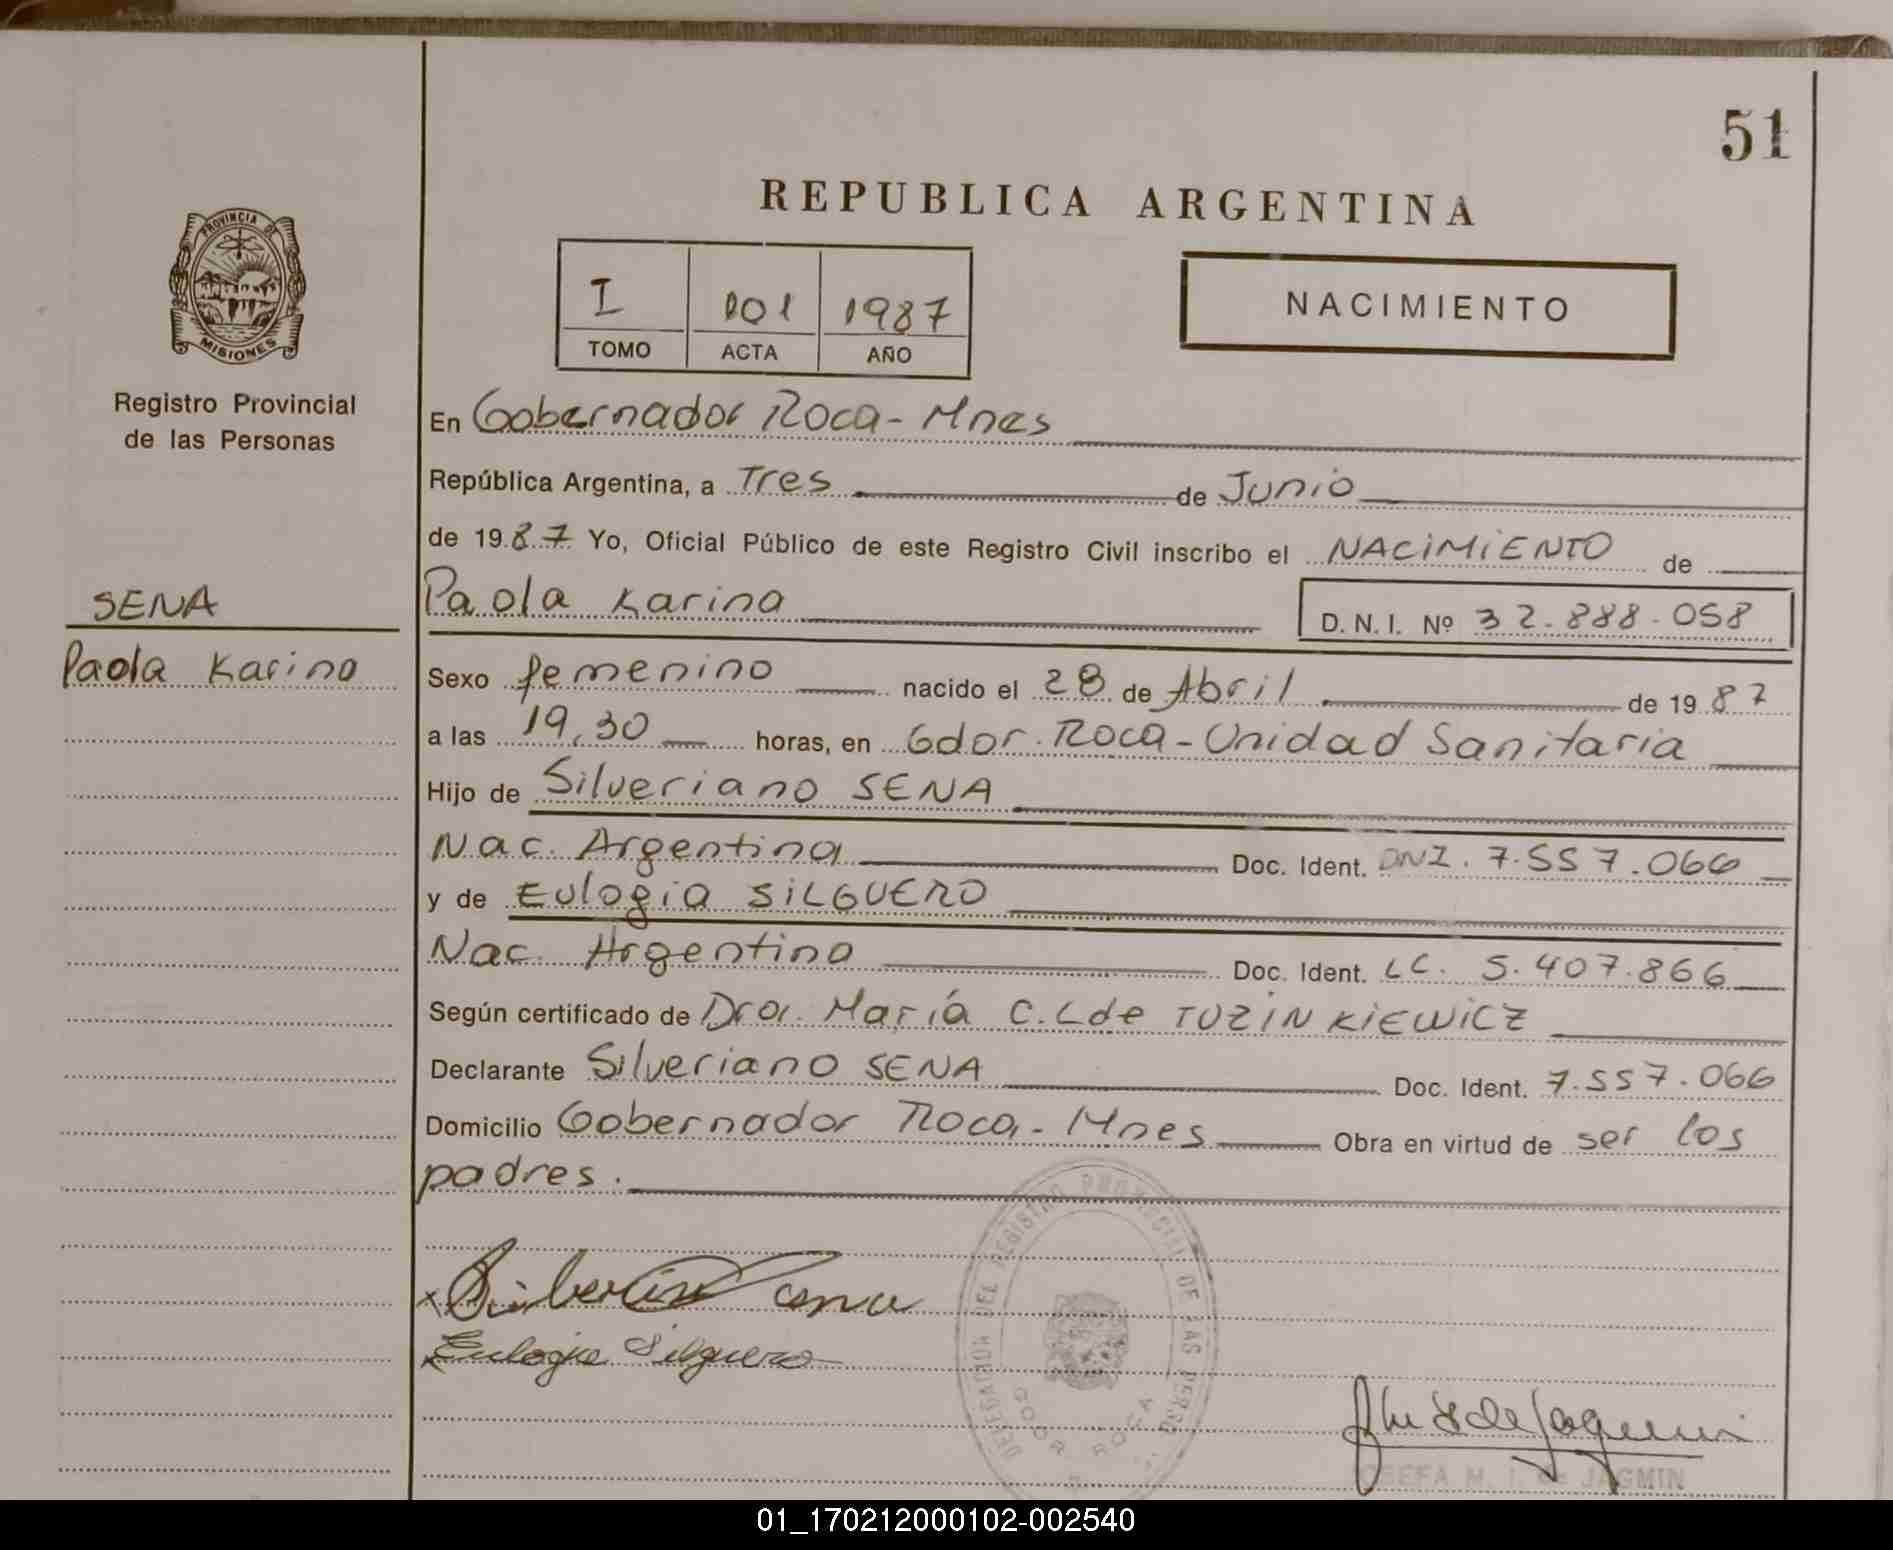 51
REPUBLICA ARGENTINA
PROVINCIA DE
MISIONES
Registro Provincial
de las Personas
I 101 1987
TOMO ACTA AÑO
NACIMIENTO
En Gobernador Roca - Mnes
República Argentina, a Tres de Junio
de 1987 Yo, Oficial Público de este Registro Civil inscribo el NACIMIENTO de
SENA
Paola Karina
Paola Karina D. N. I. Nº 32.888.058
Sexo femenino nacido el 28 de Abril de 1987
a las 19,30 horas, en Gdor. Roca - Unidad Sanitaria
Hijo de Silveriano SENA
Nac. Argentina Doc. Ident. DNI. 7.557.066
y de Eulogia SILGUERO
Nac. Argentina Doc. Ident. LC. 5.407.866
Según certificado de Dra. María C. L de TUZINKIEWICZ
Declarante Silveriano SENA Doc. Ident. 7.557.066
Domicilio Gobernador Roca - Mnes Obra en virtud de ser los
padres.
Eulogia Silguero
DEL REGISTRO PROVINCIAL DE LAS PERSO
GDOR ROCA
JOSEFA M. I. de JAGMIN
01_170212000102-002540